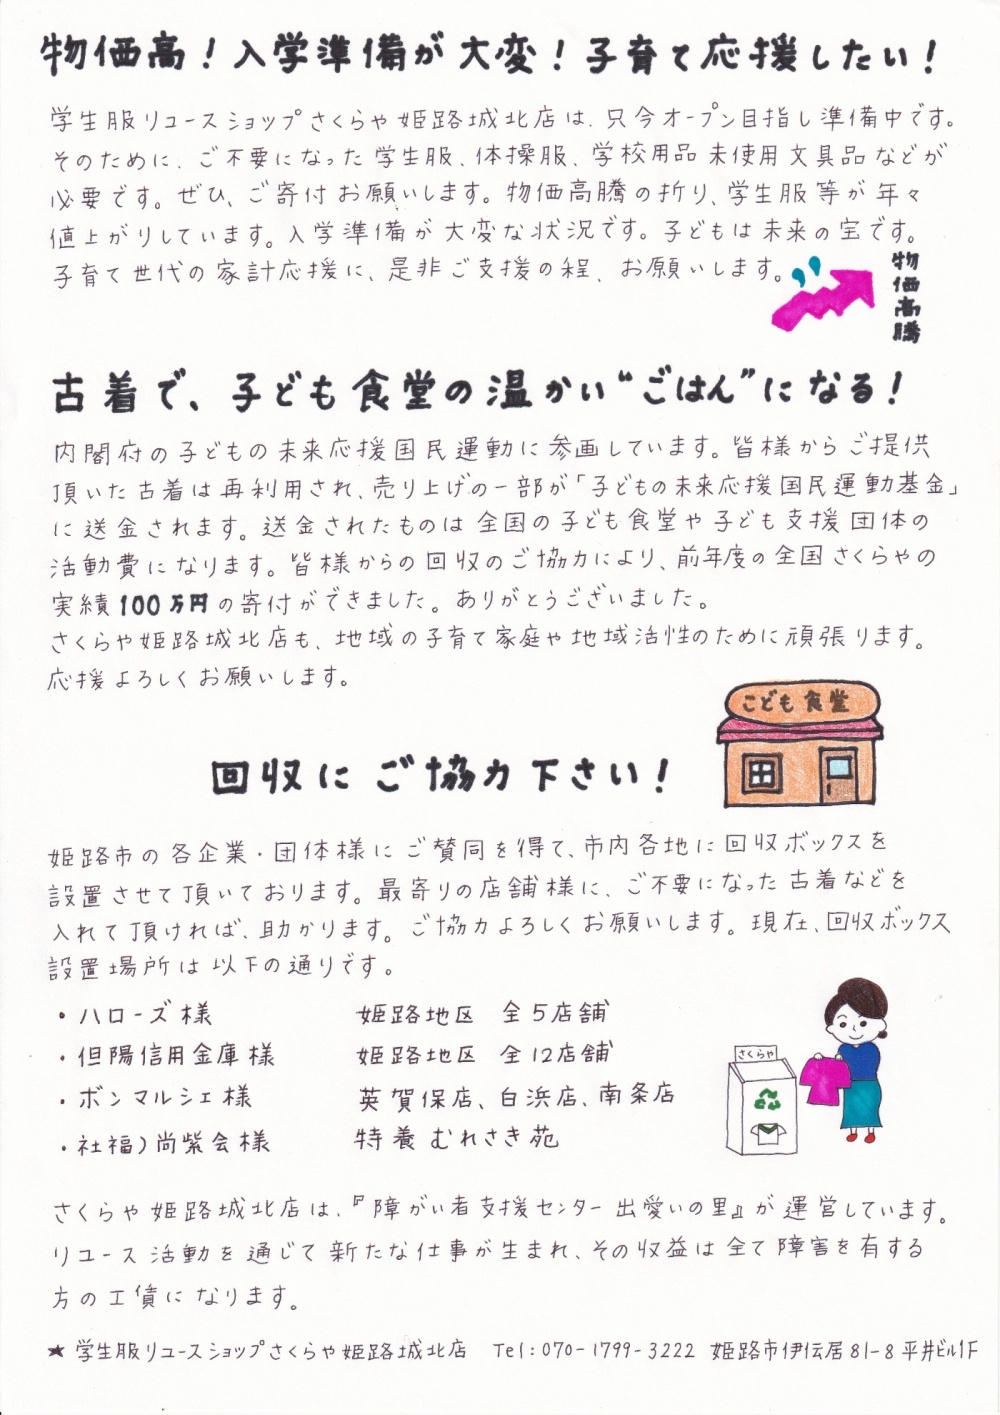 物価高！入学準備が大変！子育て応援したい！
学生服リユースショップさくらや姫路城北店は、只今オープン目指し準備中です。
そのために、ご不要になった学生服、体操服、学校用品 未使用文具品などが
必要です。ぜひ、ご寄付お願いします。物価高騰の折り、学生服等が年々
値上がりしています。入学準備が大変な状況です。子どもは未来の宝です。
子育て世代の家計応援に、是非ご支援の程、お願いします。
物価高騰
古着で、子ども食堂の温かい“ごはん”になる！
内閣府の子どもの未来応援国民運動に参画しています。皆様からご提供
頂いた古着は再利用され、売り上げの一部が「子どもの未来応援国民運動基金」
に送金されます。送金されたものは全国の子ども食堂や子ども支援団体の
活動費になります。皆様からの回収のご協力により、前年度の全国さくらやの
実績100万円の寄付ができました。ありがとうございました。
さくらや姫路城北店も、地域の子育て家庭や地域活性のために頑張ります。
応援よろしくお願いします。
こども食堂
回収にご協力下さい！
姫路市の各企業・団体様にご賛同を得て、市内各地に回収ボックスを
設置させて頂いております。最寄りの店舗様に、ご不要になった古着などを
入れて頂ければ、助かります。ご協力よろしくお願いします。現在、回収ボックス
設置場所は以下の通りです。
・ハローズ様 姫路地区 全5店舗
・但陽信用金庫様 姫路地区 全12店舗
・ボンマルシェ様 英賀保店、白浜店、南条店
・社福）尚紫会様 特養むれさき苑
さくらや
さくらや姫路城北店は、『障がい者支援センター出愛いの里』が運営しています。
リユース活動を通じて新たな仕事が生まれ、その収益は全て障害を有する
方の工賃になります。
★学生服リユースショップさくらや姫路城北店 Tel：070-1799-3222 姫路市伊伝居81-8平井ビル1F